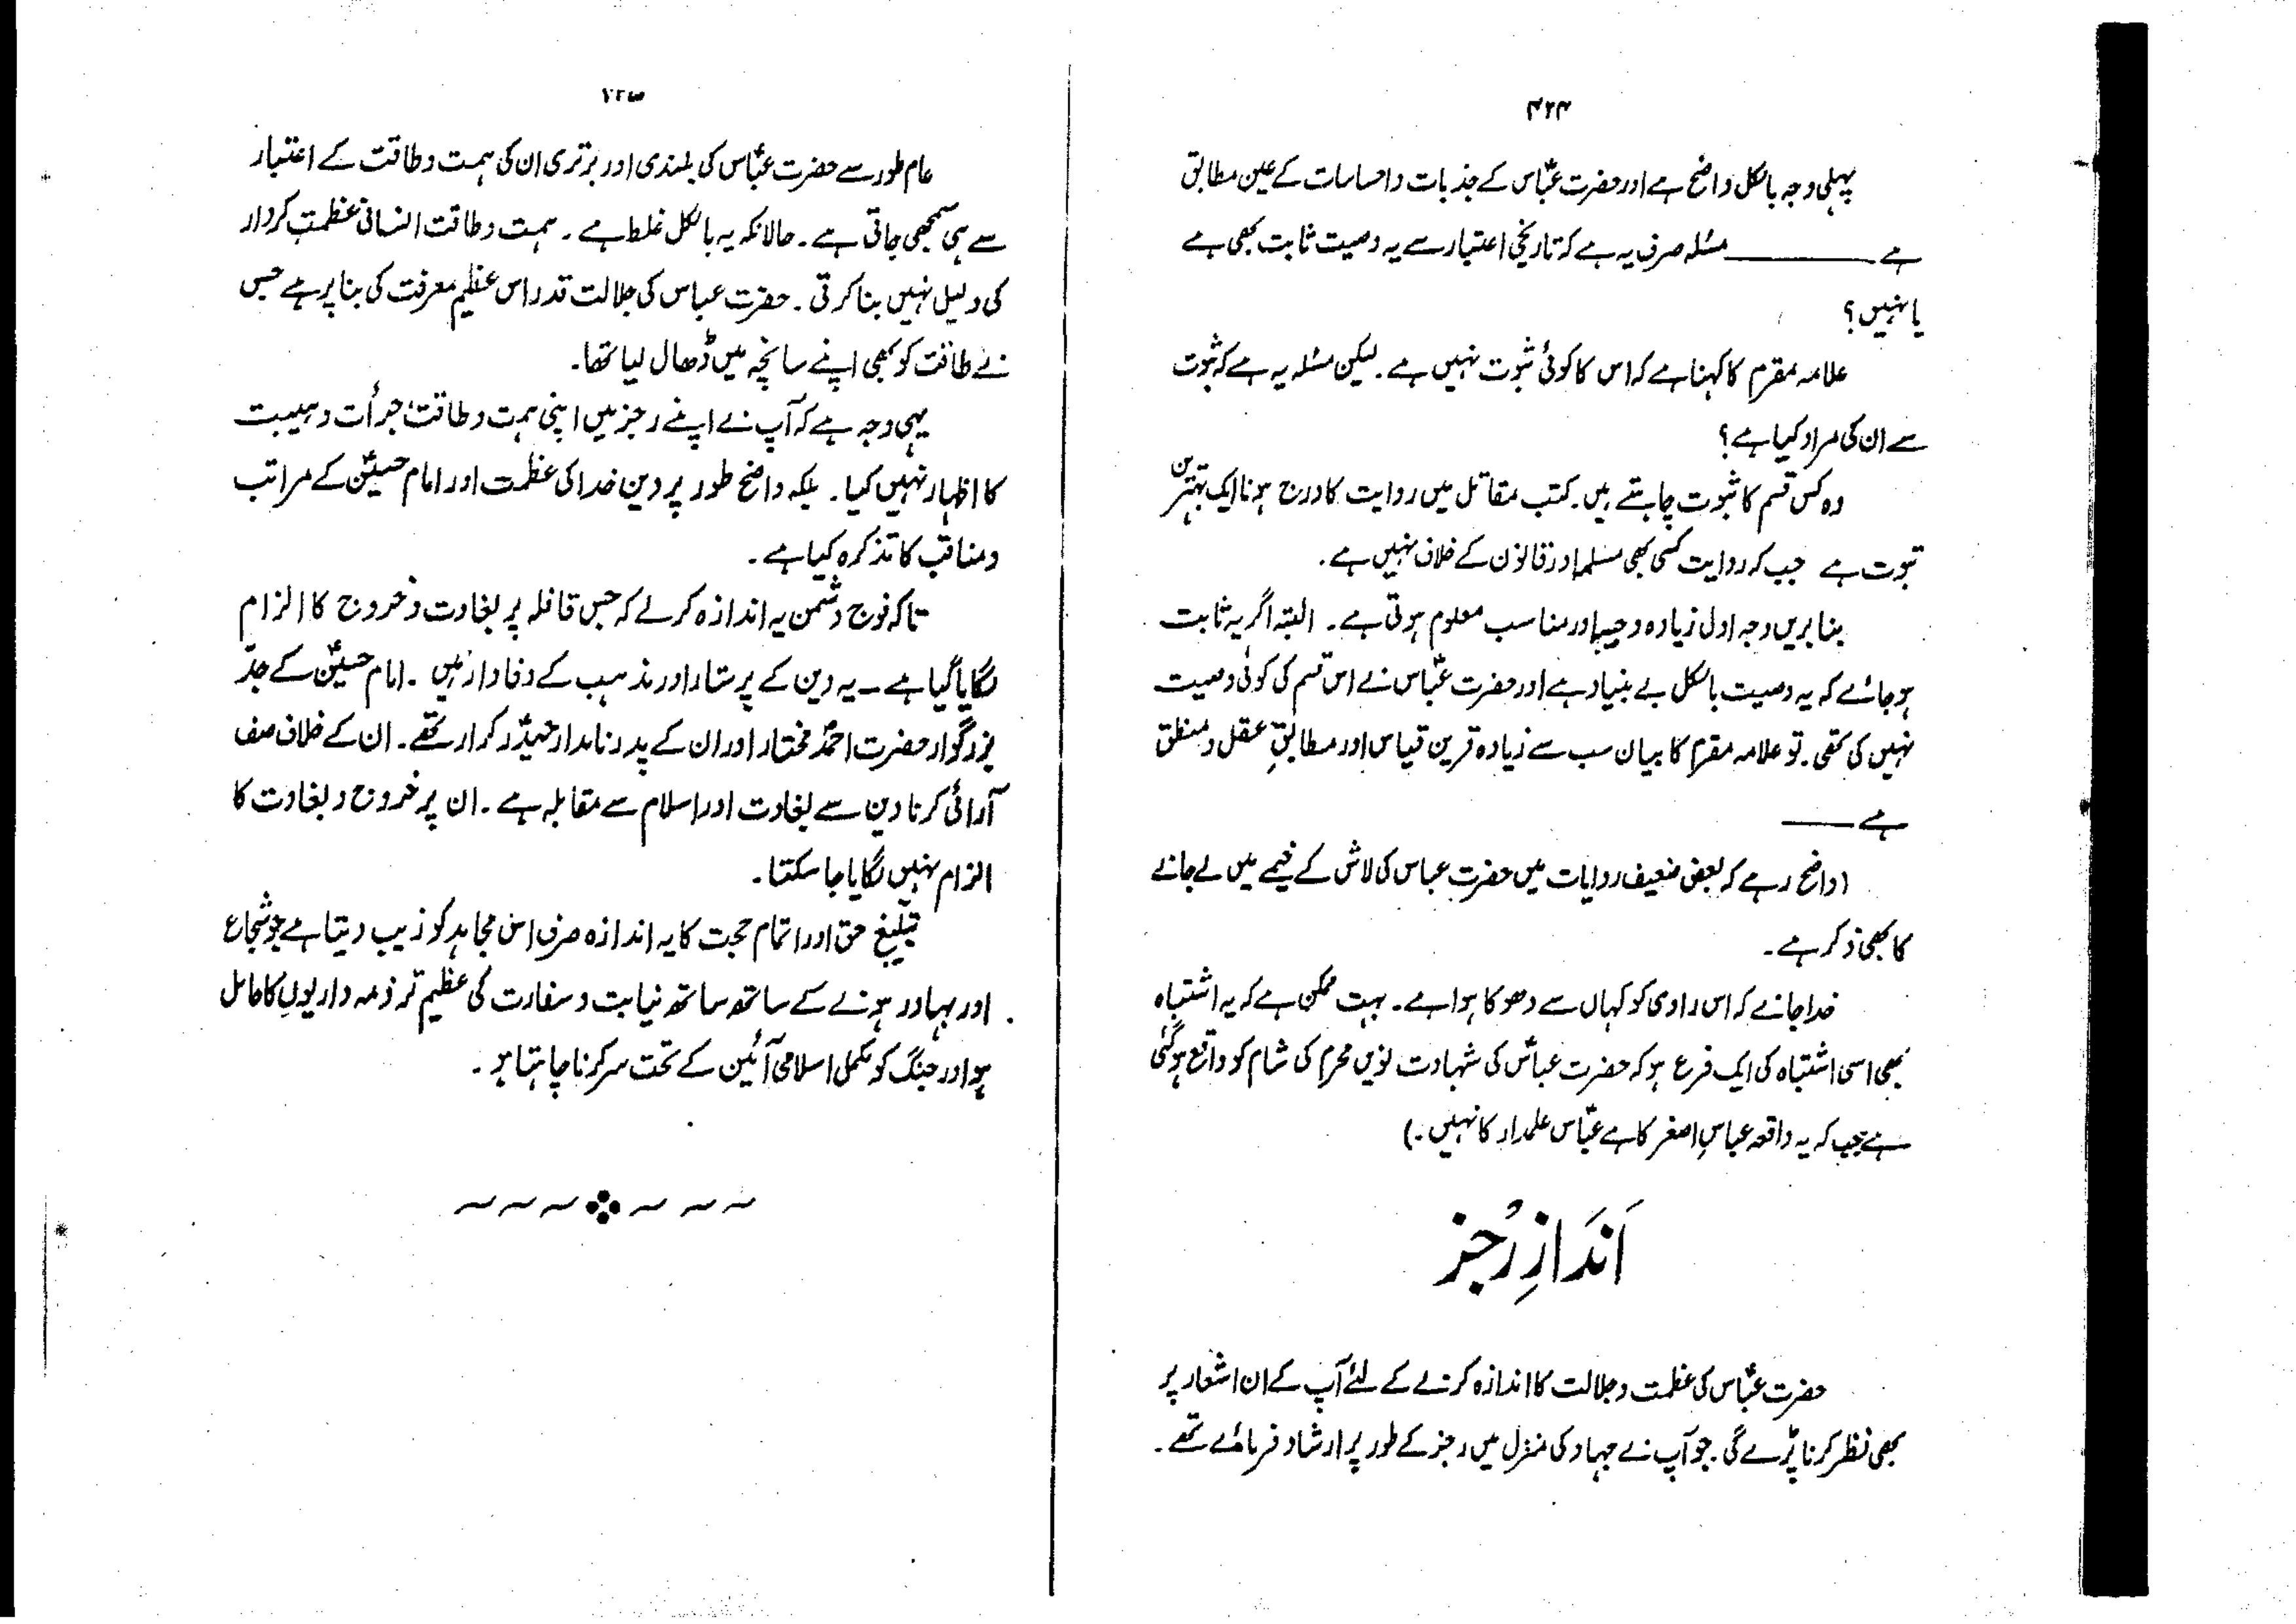 ۴۲۴
پہلی وجہ بالکل واضح ہے اور حضرت عباسؑ کے جذبات و احساسات کے عین مطابق
ہے ــــــــ مسئلہ صرف یہ ہے کہ تاریخی اعتبار سے یہ وصیت ثابت بھی ہے
یا نہیں؟
علامہ مقرم کا کہنا ہے کہ اس کا کوئی ثبوت نہیں ہے. لیکن مسئلہ یہ ہے کہ ثبوت
سے ان کی مراد کیا ہے؟
وہ کس قسم کا ثبوت چاہتے ہیں. کتب مقاتل میں روایت کا درج ہونا ایک بہترین
ثبوت ہے جب کہ روایت کسی بھی مسلمہ اور قانون کے خلاف نہیں ہے.
بنا بریں وجہ اول زیادہ وجیہہ اور مناسب معلوم ہوتی ہے۔ البتہ اگر یہ ثابت
ہو جائے کہ یہ وصیت بالکل بے بنیاد ہے اور حضرت عباسؑ نے اس قسم کی کوئی وصیت
نہیں کی تھی. تو علامہ مقرم کا بیان سب سے زیادہ قرین قیاس اور مطابقِ عقل و منطق
ہے ــــــ
(واضح رہے کہ بعض ضعیف روایات میں حضرت عباس کی لاش کے خیمے میں لے جانے
کا بھی ذکر ہے۔
خدا جانے کہ اس راوی کو کہاں سے دھوکا ہوا ہے۔ بہت ممکن ہے کہ یہ اشتباہ
بھی اسی اشتباہ کی ایک فرع ہو کہ حضرت عباسؑ کی شہادت نویں محرم کی شام کو واقع ہو گئی
ہے جب کہ یہ واقعہ عباسِ اصغر کا ہے عباسؑ علمدار کا نہیں۔)
اَندَازِ رُجز
حضرت عباسؑ کی عظمت و جلالت کا اندازہ کرنے کے لئے آپ کے ان اشعار پر
بھی نظر کرنا پڑے گی. جو آپ نے جہاد کی منزل میں رجز کے طور پر ارشاد فرمائے تھے۔
عام طور سے حضرت عباسؑ کی بلندی اور برتری ان کی ہمت و طاقت کے اعتبار
سے ہی سمجھی جاتی ہے۔ حالانکہ یہ بالکل غلط ہے۔ ہمت و طاقت انسانی عظمتِ کردار
کی دلیل نہیں بنا کرتی۔ حضرت عباس کی جلالت قدر اس عظیم معرفت کی بنا پر ہے جس
نے طاقت کو بھی اپنے سانچہ میں ڈھال لیا تھا۔
یہی وجہ ہے کہ آپ نے اپنے رجز میں اپنی ہمت و طاقت، جرأت و ہیبت
کا اظہار نہیں کیا۔ بلکہ واضح طور پر دین خدا کی عظمت اور امام حسینؑ کے مراتب
و مناقب کا تذکرہ کیا ہے۔
تاکہ فوج دشمن یہ اندازہ کرلے کہ جس قافلہ پر بغاوت و خروج کا الزام
لگایا گیا ہے ــ یہ دین کے پرستار اور مذہب کے وفادار ہیں۔ امام حسینؑ کے جدّ
بزرگوار حضرت احمدؐ مختار اور ان کے پدر نامدار حیدؑر کرار تھے۔ ان کے خلاف صف
آرائی کرنا دین سے بغاوت اور اسلام سے مقابلہ ہے۔ ان پر خروج و بغاوت کا
الزام نہیں لگایا جا سکتا۔
تبلیغ حق اور اتمام حجت کا یہ اندازہ صرف اس مجاہد کو زیب دیتا ہے جو شجاع
اور بہادر ہونے کے ساتھ ساتھ نیابت و سفارت کی عظیم تر ذمہ داریوں کا حامل
ہو اور جنگ کو مکمل اسلامی آئین کے تحت سر کرنا چاہتا ہو۔